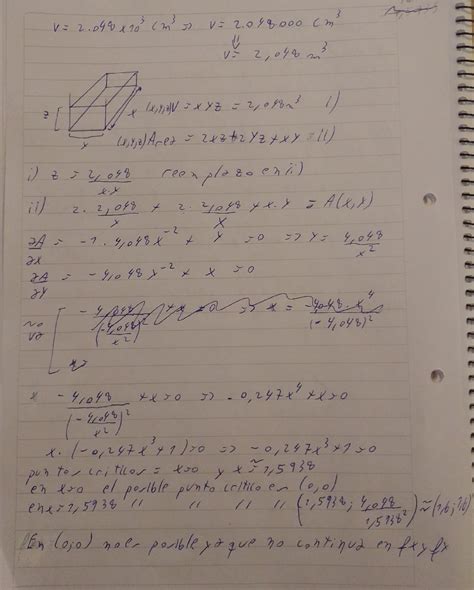 V = 2.048 x 10³ cm³ ⇒ V = 2.048000 cm³
⇓
V = 2,048 m³
z
x
y
(x,y,z) V = xyz = 2,048 m³ I)
(x,y,z) Area = 2xz + 2yz + xy II)
i) z = 2,048/x.y reemplazo en ii)
ii) 2. 2,048/y + 2. 2,048/x + x.y = A(x,y)
∂A/∂x = -1. 4,048 x⁻² + y = 0 ⇒ y = 4,048/x²
∂A/∂y = -4,048 y⁻² + x = 0
* -4,048/(-4,048/x²)² + x = 0 ⇒ -0,247x⁴ + x = 0
x. (-0,247x³ + 1) = 0 ⇒ -0,247x³ + 1 = 0
puntos criticos = x=0 y x ≈ 1,5938
en x=0 el posible punto critico es (0,0)
en x=1,5938 " " " " (1,5938; 4,048/1,5938²) ≈ (1,6; 1,6)
En (0,0) no es posible ya que no continua en fx y fy